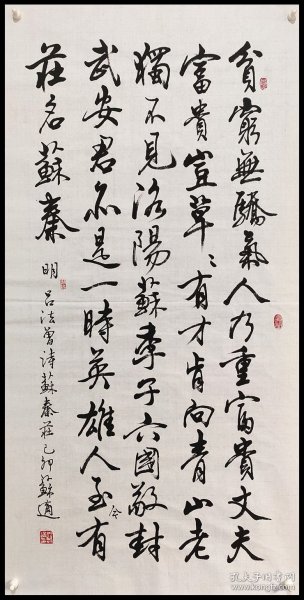 貧窮無驕氣人乃重富貴丈夫
富貴豈草〻有才肯向青山老
獨不見洛陽蘇季子六國敬封
武安君亦是一時英雄人至今有
莊名蘇秦
明 呂法曾詩蘇秦莊己卯蘇適
孔夫子旧书网